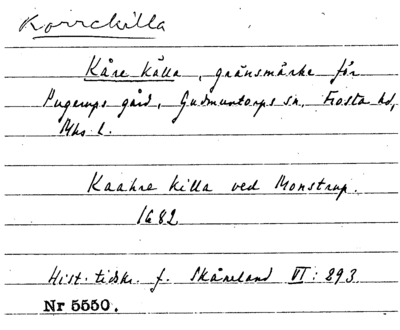 Korrekilla
Kåre källa, gränsmärke för
Pugerups gård, Gudmuntorps sn, Frosta hd,
Mhs l.
Kaahre killa ved Monstrup.
1682
Hist. tidskr. f. Skåneland VI: 893
Nr 5550.